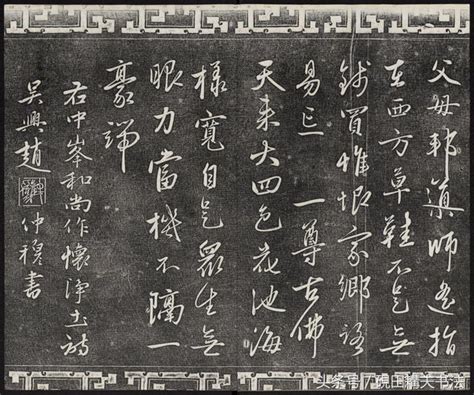 父母邦道師遙指
在西方草鞋不是無
錢買惟恨家鄉路
易忘 一尊古佛
天來大四色花池海
樣寬自是眾生無
眼力當機不隔一
豪端
右中峯和尚作懷淨土詩
吳興趙仲穆書
头条号 / 砚田耕夫书法